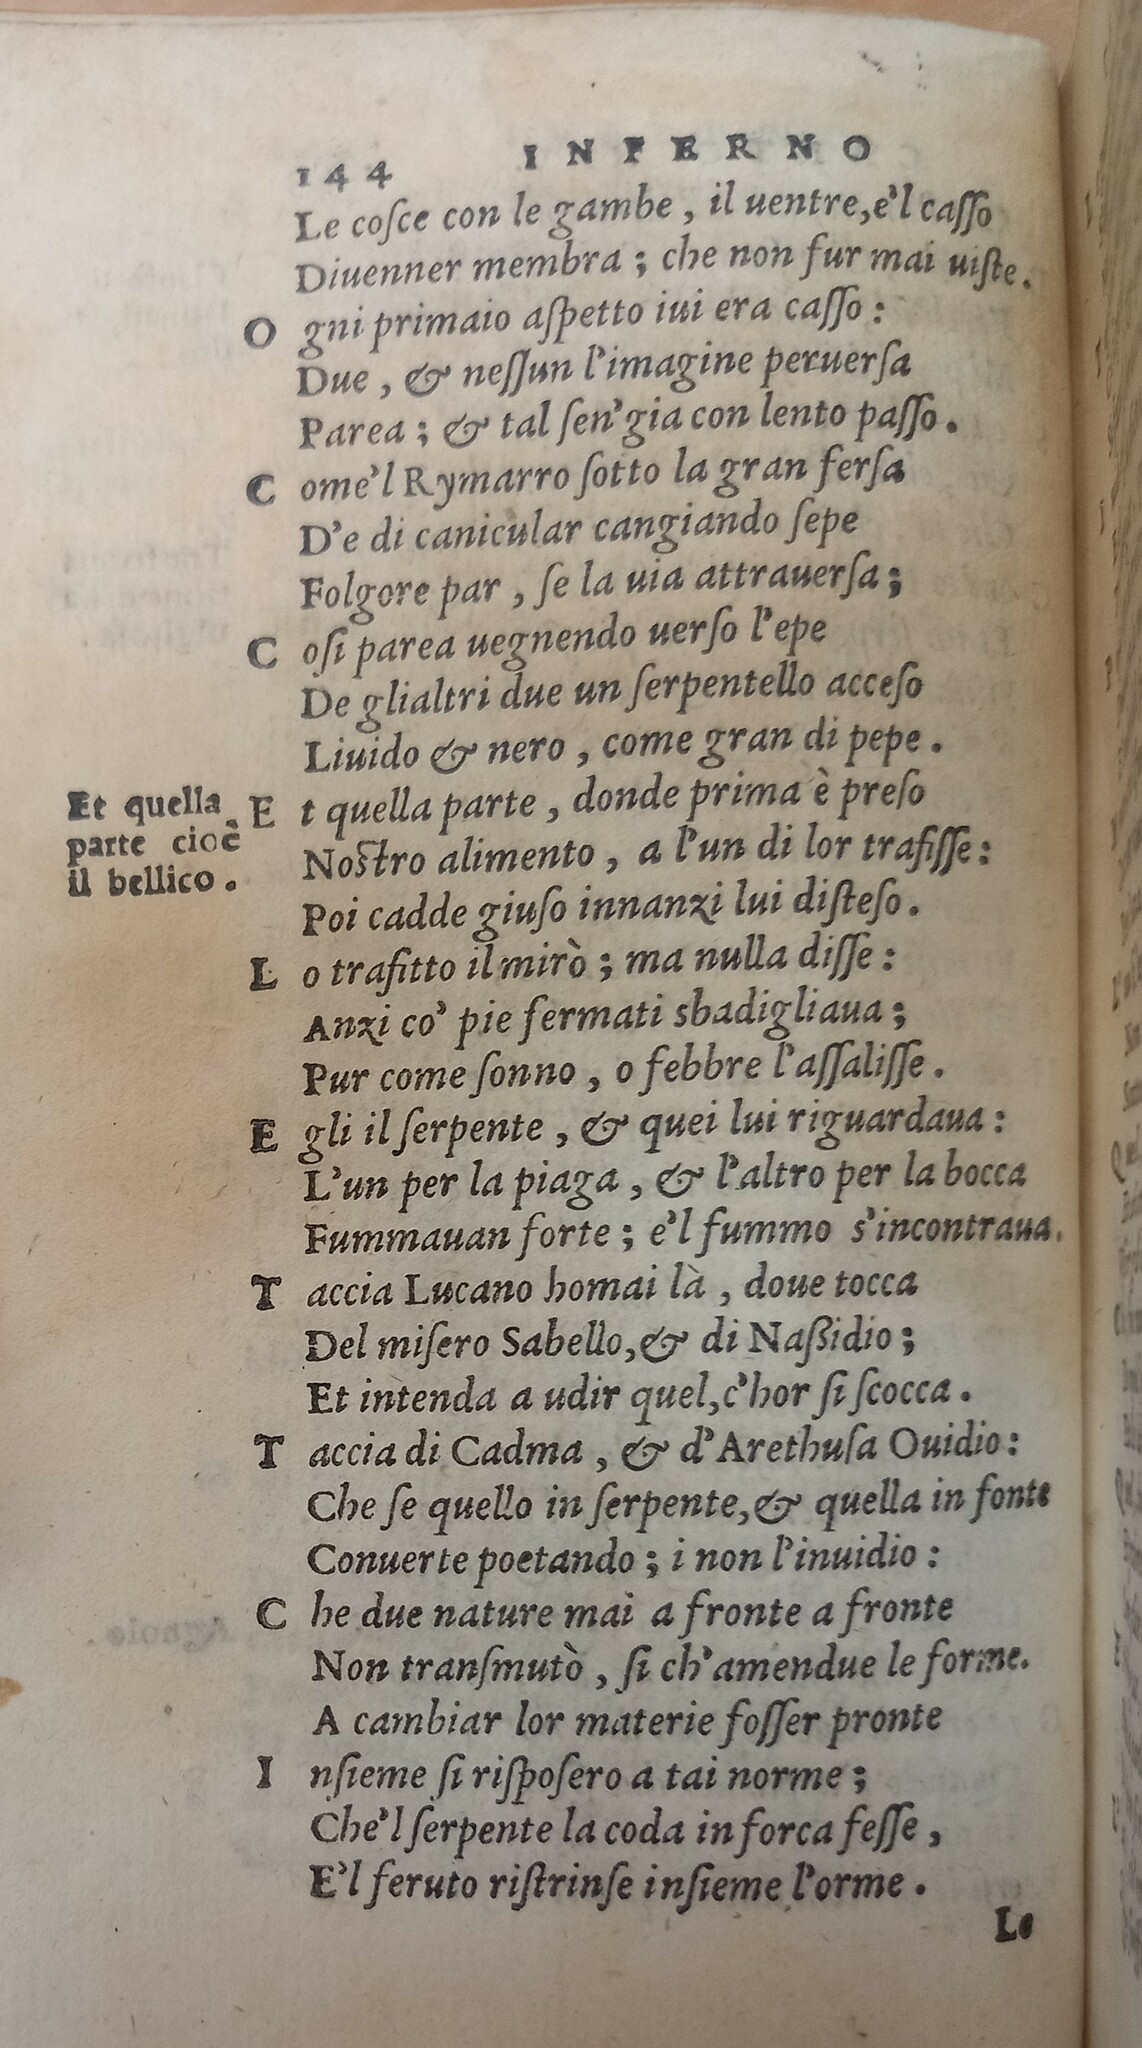 144 INFERNO
Le coſce con le gambe, il uentre, e'l caſſo
Diuenner membra; che non fur mai uiſte.
O gni primaio aſpetto iui era caſſo:
Due, & neſſun l'imagine peruerſa
Parea; & tal ſen'gia con lento paſſo.
C ome'l Rymarro ſotto la gran ferſa
D'e di canicular cangiando ſepe
Folgore par, ſe la uia attrauerſa;
C oſi parea uegnendo uerſo l'epe
De glialtri due un ſerpentello acceſo
Liuido & nero, come gran di pepe.
Et quella
parte cioè
il bellico.
E t quella parte, donde prima è preſo
Noſtro alimento, a l'un di lor trafiſſe:
Poi cadde giuſo innanzi lui diſteſo.
L o trafitto il mirò; ma nulla diſſe:
Anzi co' pie fermati sbadigliaua;
Pur come ſonno, o febbre l'aſſaliſſe.
E gli il ſerpente, & quei lui riguardaua:
L'un per la piaga, & l'altro per la bocca
Fummauan forte; e'l fummo s'incontraua.
T accia Lucano homai là, doue tocca
Del miſero Sabello, & di Naßidio;
Et intenda a udir quel, c'hor ſi ſcocca.
T accia di Cadma, & d'Arethuſa Ouidio:
Che ſe quello in ſerpente, & quella in fonte
Conuerte poetando; i non l'inuidio:
C he due nature mai a fronte a fronte
Non tranſmutò, ſi ch'amendue le forme.
A cambiar lor materie foſſer pronte
I nſieme ſi riſpoſero a tai norme;
Che'l ſerpente la coda in forca feſſe,
E'l feruto riſtrinſe inſieme l'orme.
Le